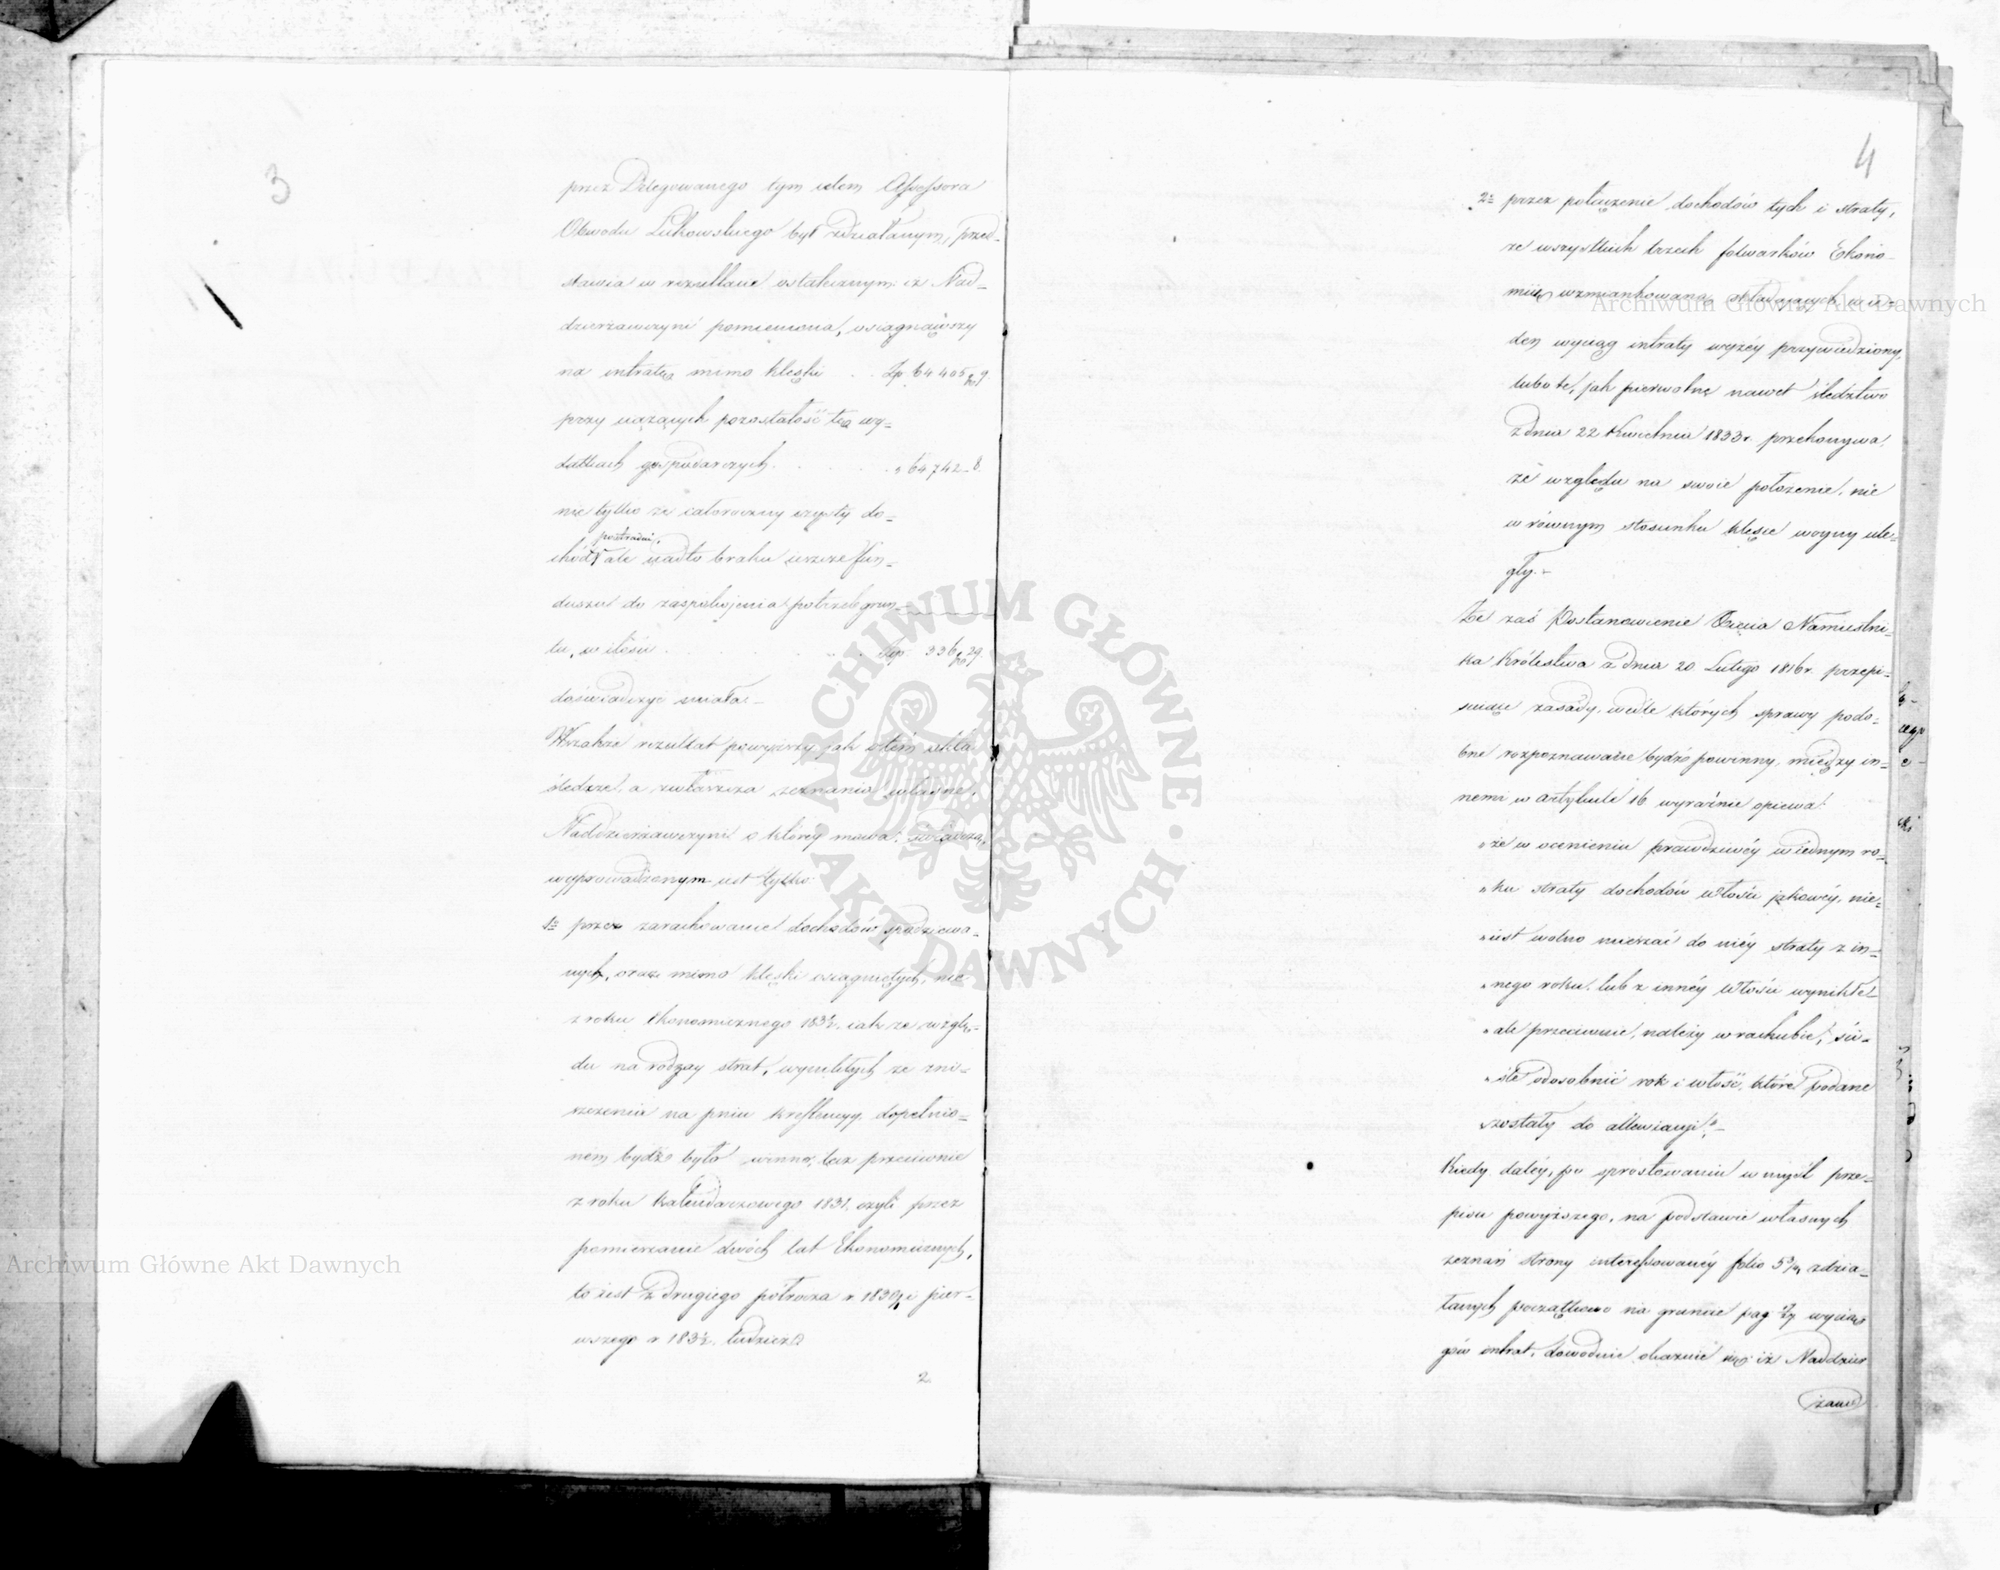 3
przez Delegowanego tym celem Assessora
Obwodu Łukowskiego był zdziałanym, przed-
stawia w rezultacie ostatecznym: iż Nad-
dzierżawczyni pomieniona, osiągnąwszy
na intratę mimo klęski . . Zp 64405 gr 9
przy ciążących pozostałość tę wy-
datkach gospodarczych . . . . „ 64742 - 8.
nie tylko że całoroczny czysty do-
chód postradać, ale nadto braku jeszcze fun-
duszu do zaspokojenia potrzeb grun-
tu, w ilości . . . . Zip 336 gr 29
doświadczyć miała.-
Wszakże rezultat powyższy jak o tem akta
śledcze, a zwłaszcza zeznania własne,
Naddzierżawczyni o której mowa, świadczą,
wyprowadzonym jest tylko:
1e przez zarachowanie dochodów spodziewa-
nych, oraz mimo klęski osiągniętych, nie
z roku Ekonomicznego 183½. jak ze wzglę-
du na rodzay strat, wynikłych ze zni-
szczenia na pniu krestencyy, dopełnio-
nem bydź było winno, lecz przeciwnie
z roku Kalendarzowego 1831. czyli przez
pomieszanie dwóch lat Ekonomicznych,
to jest z drugiego półrocza r. 1830/1 i pier-
wszego r. 183½. tudzież
2.
4
2e przez połączenie dochodów tych i straty,
ze wszystkich trzech folwarków Ekono-
miię wzmiankowaną składających w je-
den wyciąg intraty wyżéy przywiedziony,
lubo te, jak pierwotne nawet śledztwo
z dnia 22 Kwietnia 1833 r. przekonywa,
że względu na swoie położenie, nie
w równym stosunku klęsce woyny ule-
gły.-
Że zaś Postanowienie Xięcia Namiestni-
ka Królestwa z dnia 20 Lutego 1816 r. przepi-
suiące zasady, wedle których sprawy podo-
bne rozpoznawane bydź powinny, między in-
nemi w artykule 16 wyraźnie opiewa:
„że w ocenieniu prawdziwéy w jednym ro-
„ku straty dochodów włości jakowéy, nie-
„iest wolno mieszać do niéy straty z in-
„nego roku, lub z innéy włości wynikłe
„ale przeciwnie, należy w rachubie, ści-
„śle odosobnić rok i włość, które podane
„zostały do allewiacyi.”-
Kiedy daléy, po sprostowaniu w myśl prze-
pisu powyższego, na podstawie własnych
zeznań strony interessowanéy folio 5 zdzia-
łanych początkowo na gruncie pag wycią-
gów intrat, dowodnie okazuie się: iż Naddzier
żaw
Archiwum Główne Akt Dawnych
Archiwum Główne Akt Dawnych
ARCHIWUM GŁÓWNE · AKT DAWNYCH ·